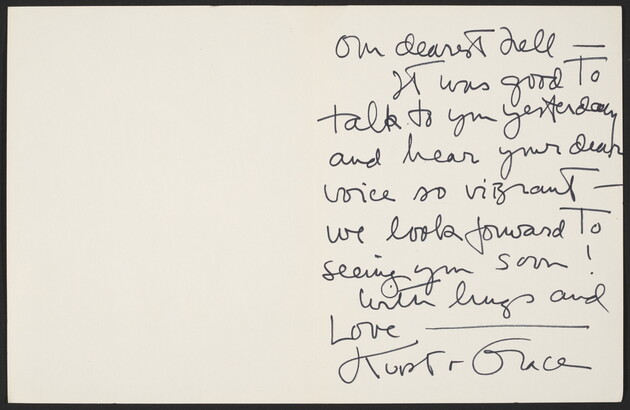 Our dearest Nell —
It was good To
talk to you yesterday
and hear your dear
voice so vibrant —
we look forward To
seeing you soon!
with hugs and
Love
Kurt + Grace